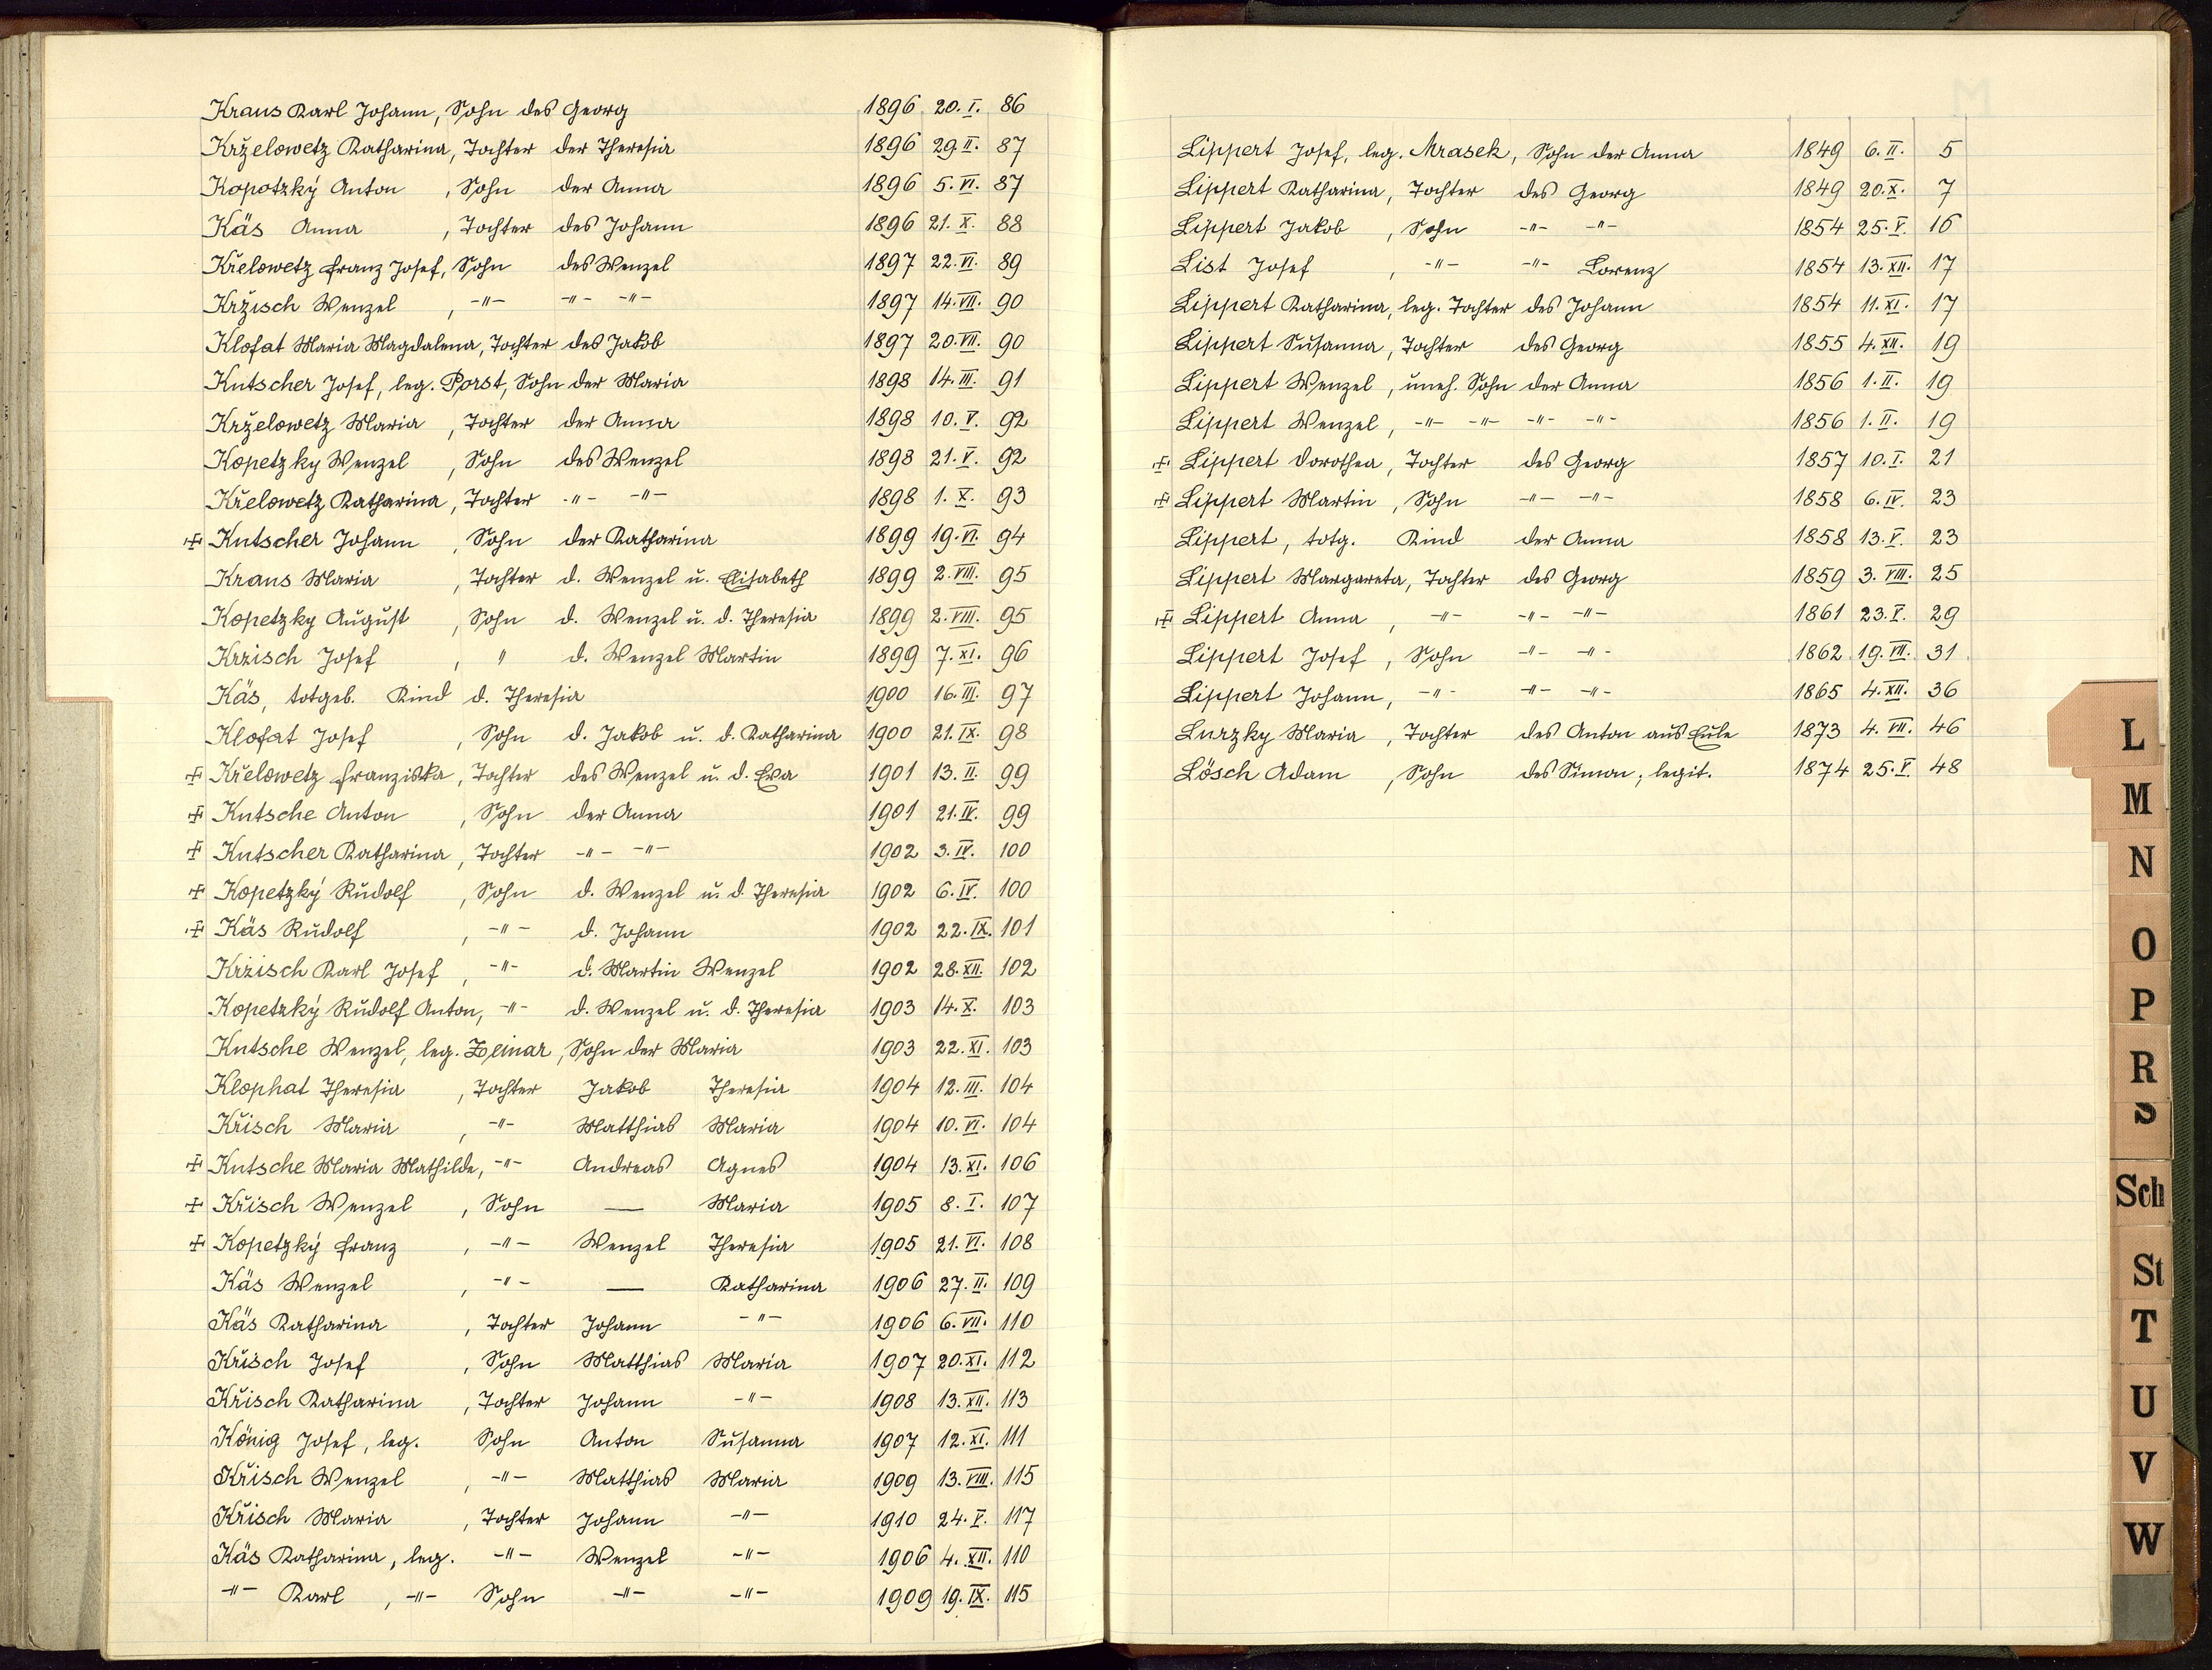 Kraus Karl Johann, Sohn des Georg 1896 20. I. 86
Krželowetz Katharina, Tochter der Theresia 1896 29. II. 87
Kopotzký Anton , Sohn der Anna 1896 5. VI. 87
Käs Anna , Tochter des Johann 1896 21. X. 88
Křelowetz Franz Josef, Sohn des Wenzel 1897 22. VI. 89
Kržisch Wenzel , -"- -"- -"- 1897 14. VII. 90
Klofat Maria Magdalena, Tochter des Jakob 1897 20. VII. 90
Kutscher Josef, leg. Porst, Sohn der Maria 1898 14. III. 91
Krželowetz Maria , Tochter der Anna 1898 10. V. 92
Kopetzky Wenzel , Sohn des Wenzel 1898 21. V. 92
Křelowetz Katharina, Tochter -"- -"- 1898 1. X. 93
+ Kutscher Johann , Sohn der Katharina 1899 19. VI. 94
Kraus Maria , Tochter d. Wenzel u. Elisabeth 1899 2. VIII. 95
Kopetzky August , Sohn d. Wenzel u. d. Theresia 1899 2. VIII. 95
Krzisch Josef , " d. Wenzel Martin 1899 7. XI. 96
Käs, totgeb. Kind d. Theresia 1900 16. III. 97
Klofat Josef , Sohn d. Jakob u. d. Katharina 1900 21. IX. 98
+ Křelowetz Franziska, Tochter des Wenzel u. d. Eva 1901 13. II. 99
+ Kutsche Anton , Sohn der Anna 1901 21. IV. 99
+ Kutscher Katharina, Tochter -"- -"- 1902 3. IV. 100
+ Kopetzký Rudolf , Sohn d. Wenzel u. d. Theresia 1902 6. IV. 100
+ Käs Rudolf , -"- d. Johann 1902 22. IX. 101
Kržisch Karl Josef , -"- d. Martin Wenzel 1902 28. XII. 102
Kopetzký Rudolf Anton, -"- d. Wenzel u. d. Theresia 1903 14. X. 103
Kutsche Wenzel, leg. Zeinar, Sohn der Maria 1903 22. XI. 103
Klophat Theresia , Tochter Jakob Theresia 1904 12. III. 104
Křisch Maria , -"- Matthias Maria 1904 10. VI. 104
+ Kutsche Maria Mathilde, -"- Andreas Agnes 1904 13. XI. 106
+ Křisch Wenzel , Sohn — Maria 1905 8. I. 107
+ Kopetzký Franz , -"- Wenzel Theresia 1905 21. VI. 108
Käs Wenzel , -"- — Katharina 1906 27. II. 109
Käs Katharina , Tochter Johann -"- 1906 6. VII. 110
Křisch Josef , Sohn Matthias Maria 1907 20. XI. 112
Křisch Katharina , Tochter Johann -"- 1908 13. XII. 113
König Josef, leg. Sohn Anton Susanna 1907 12. XI. 111
Křisch Wenzel , -"- Matthias Maria 1909 13. VIII. 115
Křisch Maria , Tochter Johann -"- 1910 24. V. 117
Käs Katharina, leg. -"- Wenzel -"- 1906 4. XII. 110
-"- Karl , -"- Sohn -"- -"- 1909 19. IX. 115
Lippert Josef, leg. Mrasek, Sohn der Anna 1849 6. II. 5
Lippert Katharina, Tochter des Georg 1849 20. X. 7
Lippert Jakob , Sohn -"- -"- 1854 25. V. 16
List Josef , -"- -"- Lorenz 1854 13. XII. 17
Lippert Katharina, leg. Tochter des Johann 1854 11. XI. 17
Lippert Susanna, Tochter des Georg 1855 4. XII. 19
Lippert Wenzel, uneh. Sohn der Anna 1856 1. II. 19
Lippert Wenzel, -"- -"- -"- -"- 1856 1. II. 19
+ Lippert Dorothea, Tochter des Georg 1857 10. I. 21
+ Lippert Martin, Sohn -"- -"- 1858 6. IV. 23
Lippert, totg. Kind der Anna 1858 13. V. 23
Lippert Margareta, Tochter des Georg 1859 3. VIII. 25
+ Lippert Anna , -"- -"- -"- 1861 23. V. 29
Lippert Josef , Sohn -"- -"- 1862 19. VII. 31
Lippert Johann, -"- -"- -"- 1865 4. XII. 36
Lurzky Maria , Tochter des Anton aus Eule 1873 4. VII. 46
Lösch Adam , Sohn des Simon; legit. 1874 25. V. 48
L
M
N
O
P
R
S
Sch
St
T
U
V
W